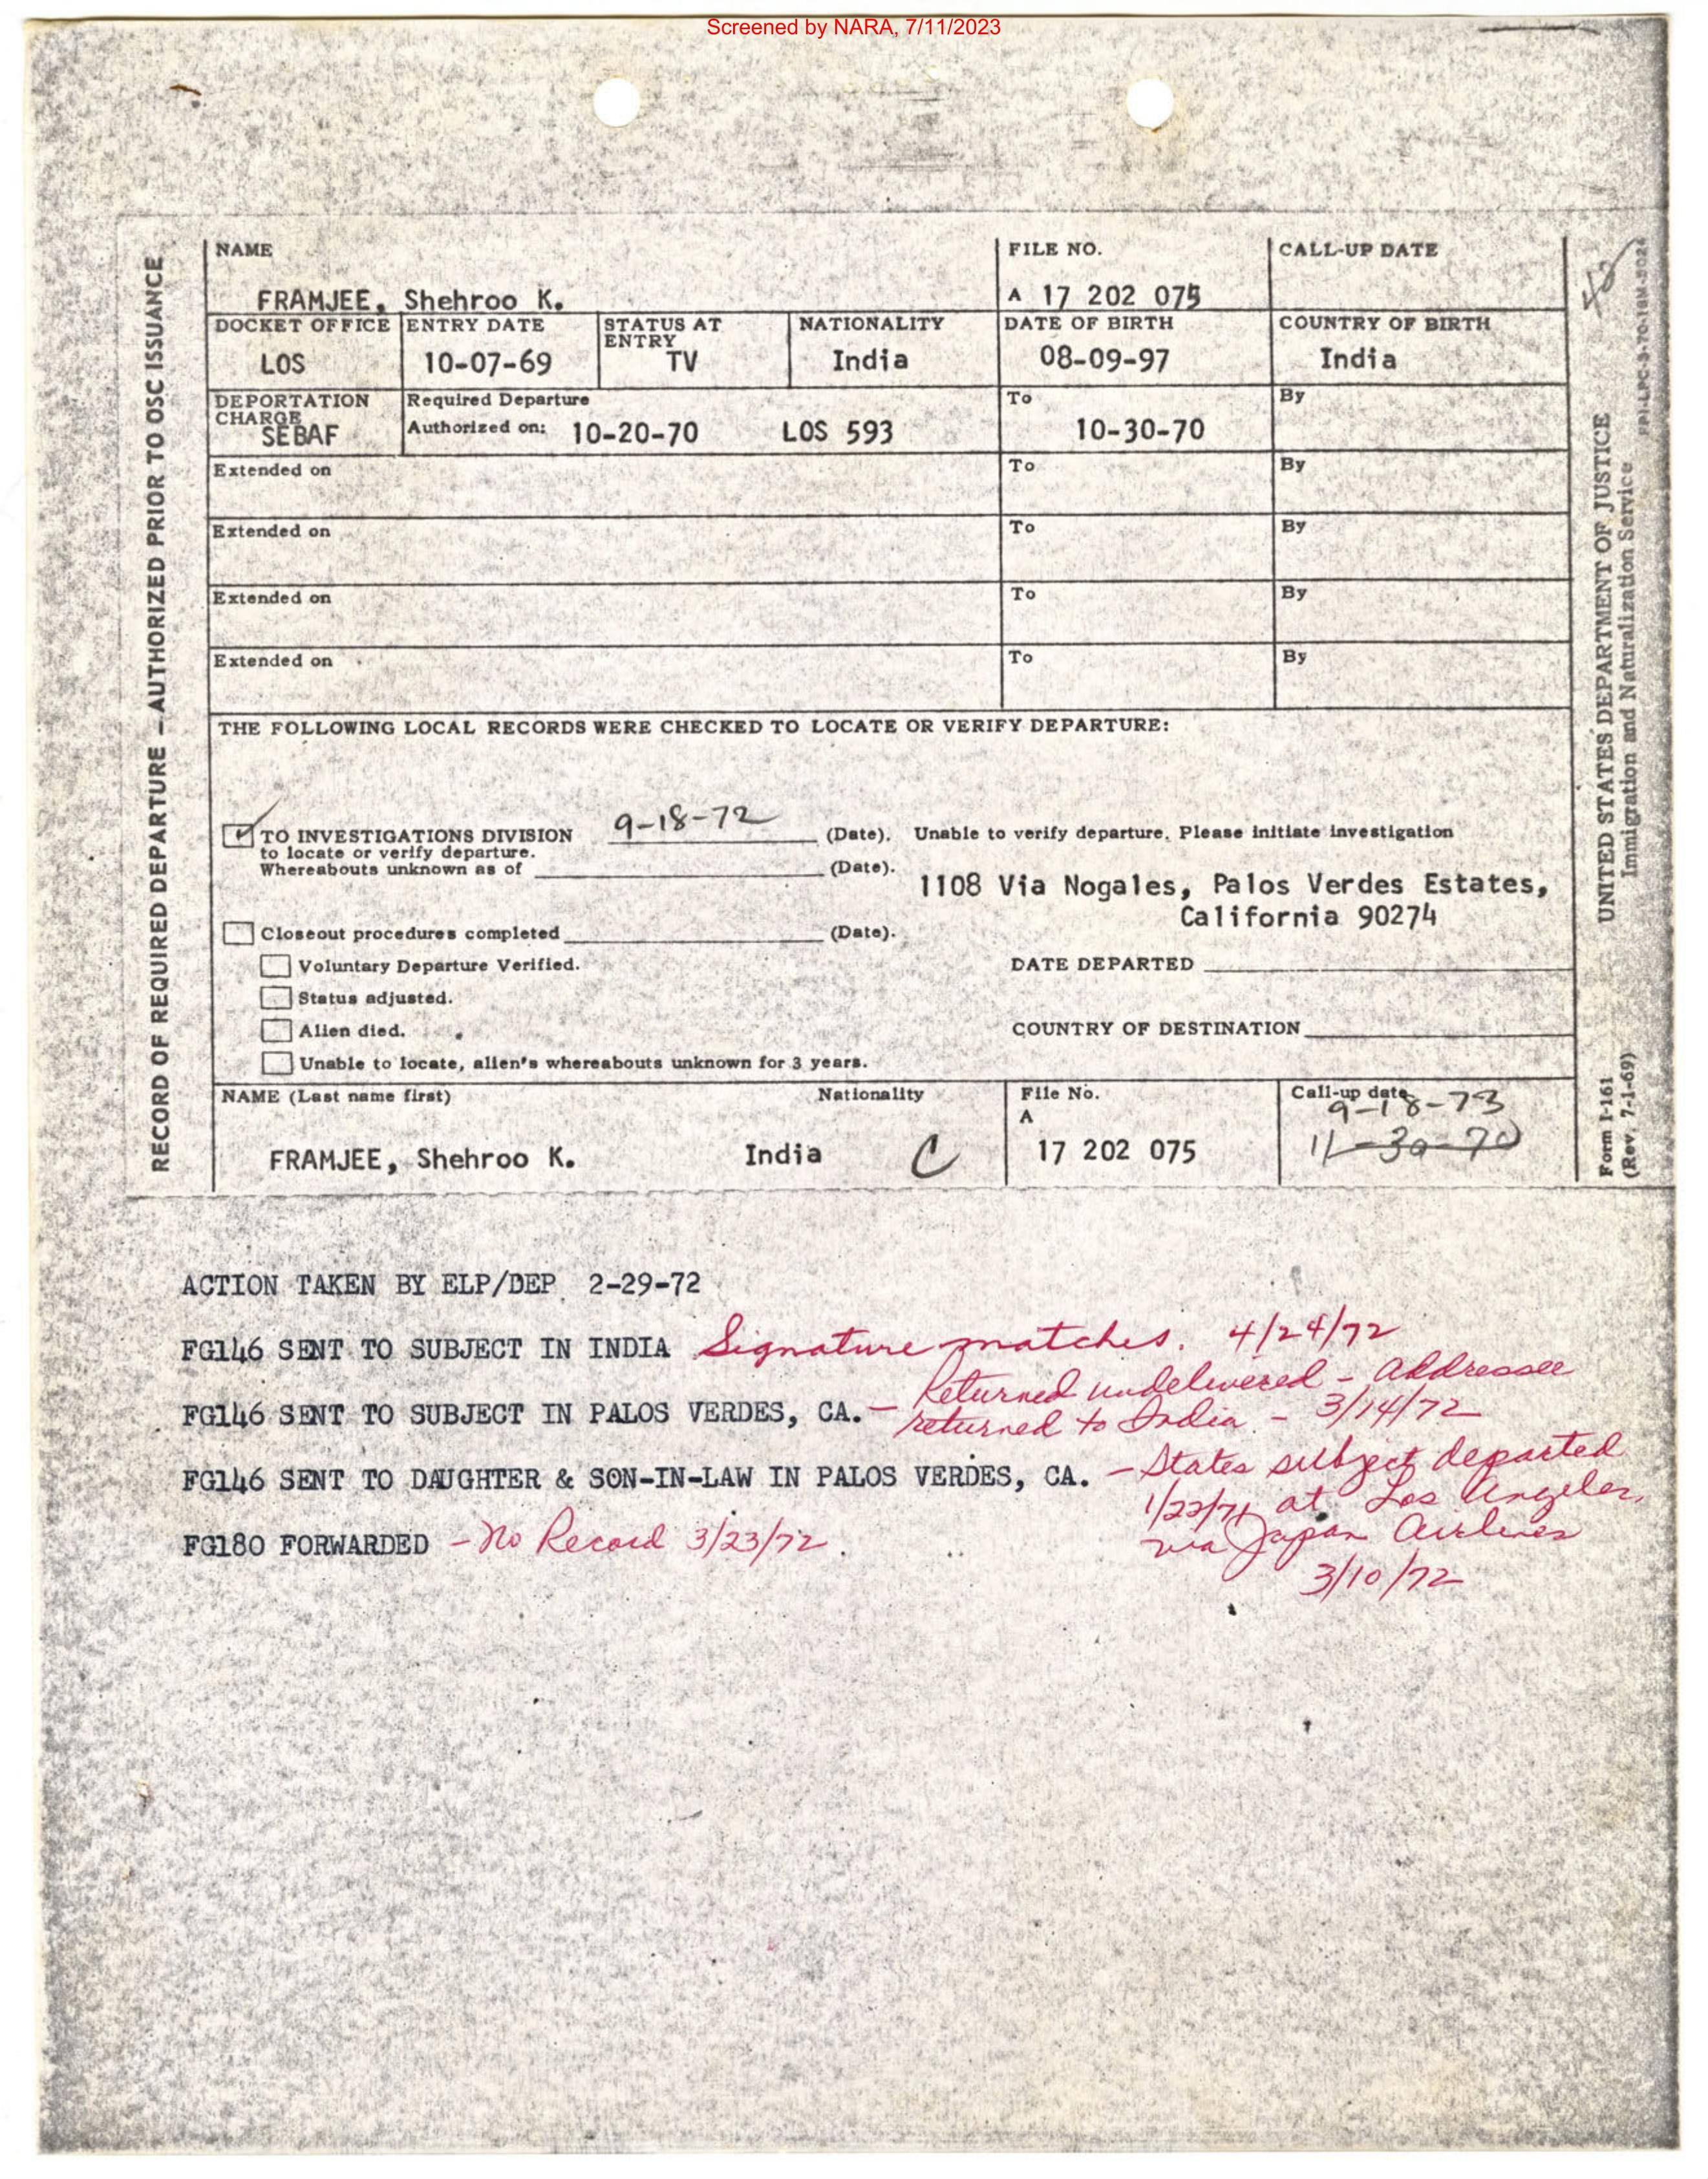 Screened by NARA, 7/11/2023
RECORD OF REQUIRED DEPARTURE – AUTHORIZED PRIOR TO OSC ISSUANCE
NAME FILE NO. CALL-UP DATE
FRAMJEE, Shehroo K. A 17 202 075
DOCKET OFFICE ENTRY DATE STATUS AT ENTRY NATIONALITY DATE OF BIRTH COUNTRY OF BIRTH
LOS 10-07-69 TV India 08-09-97 India
DEPORTATION CHARGE Required Departure To By
SEBAF Authorized on: 10-20-70 LOS 593 10-30-70
Extended on To By
Extended on To By
Extended on To By
Extended on To By
THE FOLLOWING LOCAL RECORDS WERE CHECKED TO LOCATE OR VERIFY DEPARTURE:
TO INVESTIGATIONS DIVISION 9-18-72 (Date). Unable to verify departure. Please initiate investigation
to locate or verify departure.
Whereabouts unknown as of (Date).
1108 Via Nogales, Palos Verdes Estates,
California 90274
Closeout procedures completed (Date).
Voluntary Departure Verified. DATE DEPARTED
Status adjusted.
Alien died. COUNTRY OF DESTINATION
Unable to locate, alien's whereabouts unknown for 3 years.
NAME (Last name first) Nationality File No. Call-up date
A 9-18-73
FRAMJEE, Shehroo K. India C 17 202 075 11-30-70
UNITED STATES DEPARTMENT OF JUSTICE
Immigration and Naturalization Service
Form I-161
(Rev. 7-1-69)
ACTION TAKEN BY ELP/DEP 2-29-72
FG146 SENT TO SUBJECT IN INDIA Signature matches. 4/24/72
FG146 SENT TO SUBJECT IN PALOS VERDES, CA. – Returned undelivered – Addressee
returned to India – 3/14/72
FG146 SENT TO DAUGHTER & SON-IN-LAW IN PALOS VERDES, CA. – States subject departed
1/22/71 at Los Angeles,
via Japan Airlines
3/10/72
FG180 FORWARDED – No Record 3/23/72.